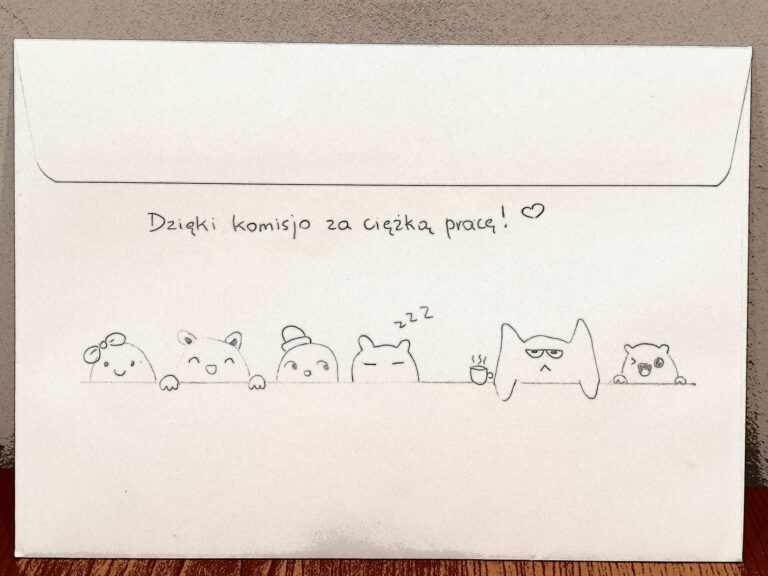 Dzięki komisjo za ciężką pracę! ♡
zzz